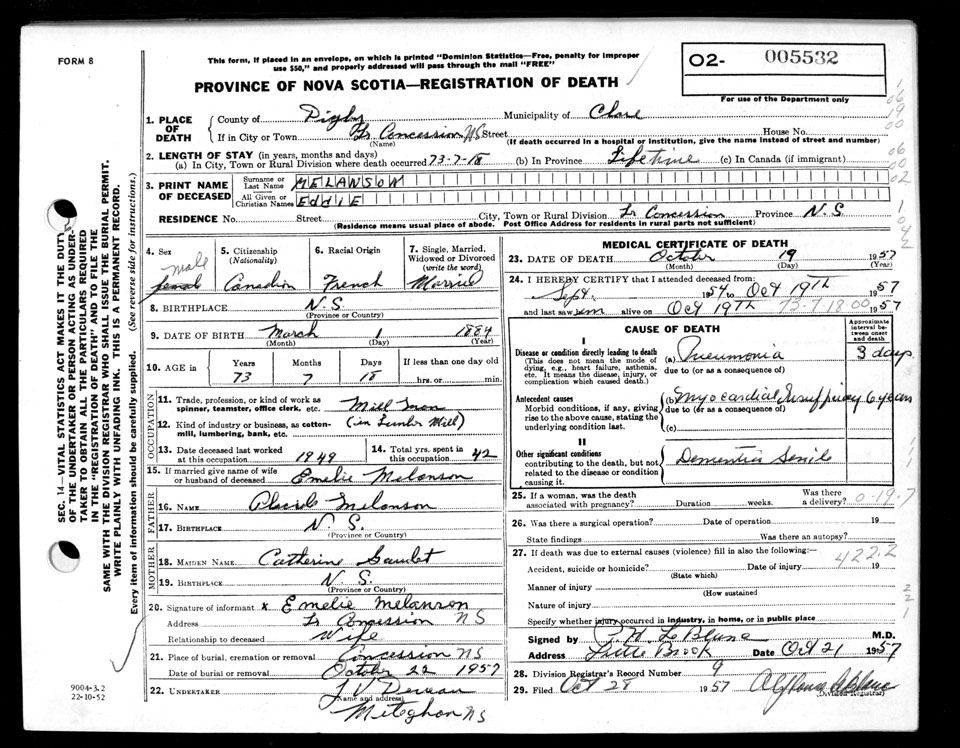 FORM 8
This form, if placed in an envelope, on which is printed "Dominion Statistics—Free, penalty for improper
use $50," and properly addressed will pass through the mail "FREE"
PROVINCE OF NOVA SCOTIA—REGISTRATION OF DEATH
O2- 005532
For use of the Department only
1. PLACE OF DEATH
County of Digby Municipality of Clare
If in City or Town Lr Concession NS Street House No.
(Name) (If death occurred in a hospital or institution, give the name instead of street and number)
2. LENGTH OF STAY (in years, months and days)
(a) In City, Town or Rural Division where death occurred 73-7-18 (b) In Province Lifetime (c) In Canada (if immigrant)
3. PRINT NAME OF DECEASED
Surname or Last Name MELANSON
All Given or Christian Names EDDIE
RESIDENCE No. Street City, Town or Rural Division Lr Concession Province N.S.
(Residence means usual place of abode. Post Office Address for residents in rural parts not sufficient)
4. Sex 5. Citizenship (Nationality) 6. Racial Origin 7. Single, Married, Widowed or Divorced (write the word)
male Canadian French Married
8. BIRTHPLACE N.S.
(Province or Country)
9. DATE OF BIRTH March 1 1884
(Month) (Day) (Year)
10. AGE in Years Months Days If less than one day old
73 7 18 hrs. or min.
OCCUPATION
11. Trade, profession, or kind of work as spinner, teamster, office clerk, etc. Mill man
12. Kind of industry or business, as cotton-mill, lumbering, bank, etc. (in Lumber Mill)
13. Date deceased last worked at this occupation 1949 14. Total yrs. spent in this occupation 42
15. If married give name of wife or husband of deceased Emelie Melanson
FATHER
16. NAME Placide Melanson
17. BIRTHPLACE N.S.
(Province or Country)
MOTHER
18. MAIDEN NAME Catherine
19. BIRTHPLACE N.S.
(Province or Country)
20. Signature of informant x Emelie Melanson
Address Lr Concession NS
Relationship to deceased Wife
21. Place of burial, cremation or removal Concession NS
Date of burial or removal October 22 1957
22. UNDERTAKER
(Name and address)
Meteghan NS
MEDICAL CERTIFICATE OF DEATH
23. DATE OF DEATH October 19 1957
(Month) (Day) (Year)
24. I HEREBY CERTIFY that I attended deceased from:
Sept. 1954 to Oct 19TH 1957
and last saw him alive on Oct 19TH 73-7-18 00 1957
CAUSE OF DEATH
Approximate interval between onset and death
I
Disease or condition directly leading to death
(This does not mean the mode of dying, e.g., heart failure, asthenia, etc. It means the disease, injury, or complication which caused death.)
(a) Pneumonia 3 days
due to (or as a consequence of)
Antecedent causes
Morbid conditions, if any, giving rise to the above cause, stating the underlying condition last.
(b) Myocardial Insufficiency 6 years
due to (or as a consequence of)
(c)
II
Other significant conditions
contributing to the death, but not related to the disease or condition causing it.
Dementia Senile
25. If a woman, was the death associated with pregnancy? Duration weeks. Was there a delivery? 0-19-7
26. Was there a surgical operation? Date of operation 19
State findings Was there an autopsy?
27. If death was due to external causes (violence) fill in also the following:— 422.2
Accident, suicide or homicide? Date of injury 19
(State which)
Manner of injury
(How sustained)
Nature of injury
Specify whether injury occurred in industry, in home, or in public place
Signed by LeBlanc M.D.
Address Little Brook Date Oct 21 1957
28. Division Registrar's Record Number 9
29. Filed Oct 28 1957
(Division Registrar)
SEC. 14—VITAL STATISTICS ACT MAKES IT THE DUTY
OF THE UNDERTAKER OR PERSON ACTING AS UNDER-
TAKER TO OBTAIN ALL THE PARTICULARS REQUIRED
IN THE "REGISTRATION OF DEATH" AND TO FILE THE
SAME WITH THE DIVISION REGISTRAR WHO SHALL ISSUE THE BURIAL PERMIT.
WRITE PLAINLY WITH UNFADING INK. THIS IS A PERMANENT RECORD.
Every item of information should be carefully supplied. (See reverse side for instructions.)
9004-3.2
22-10-52